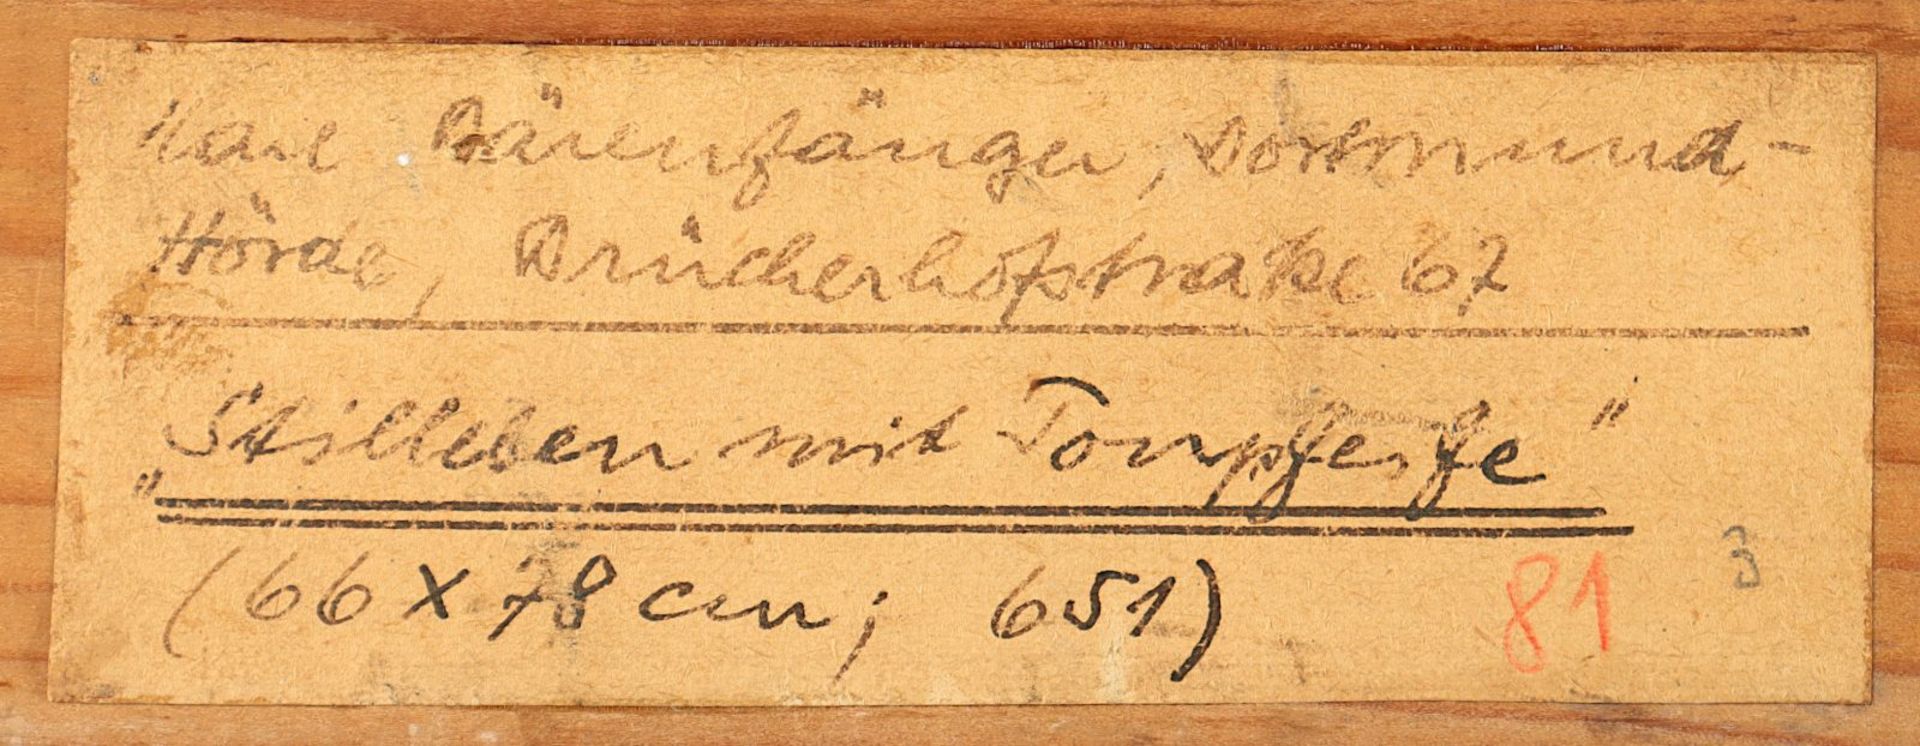 Karl Bärenfänger, Dortmund-
Hörde, Brücherhofstraße 67
"Stilleben mit Tonpfeife"
(66 x 78 cm; 651) 81 3